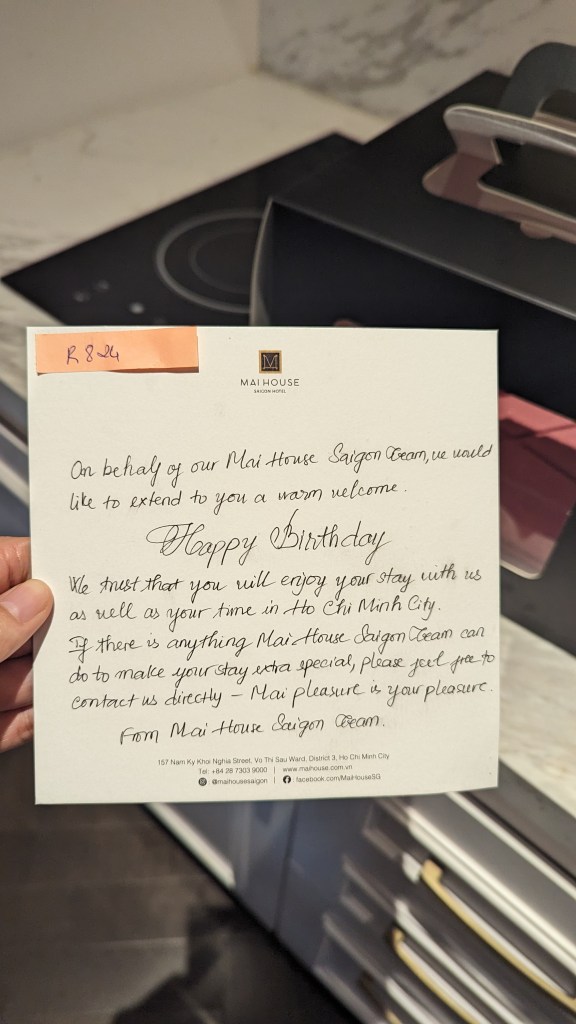 R 824
M
MAI HOUSE
SAIGON HOTEL
On behalf of our Mai House Saigon Team, we would
like to extend to you a warm welcome.
Happy Birthday
We trust that you will enjoy your stay with us
as well as your time in Ho Chi Minh City.
If there is anything Mai House Saigon Team can
do to make your stay extra special, please feel free to
contact us directly – Mai pleasure is your pleasure.
From Mai House Saigon Team.
157 Nam Ky Khoi Nghia Street, Vo Thi Sau Ward, District 3, Ho Chi Minh City
Tel: +84 28 7303 9000 | www.maihouse.com.vn
@maihousesaigon | facebook.com/MaiHouseSG